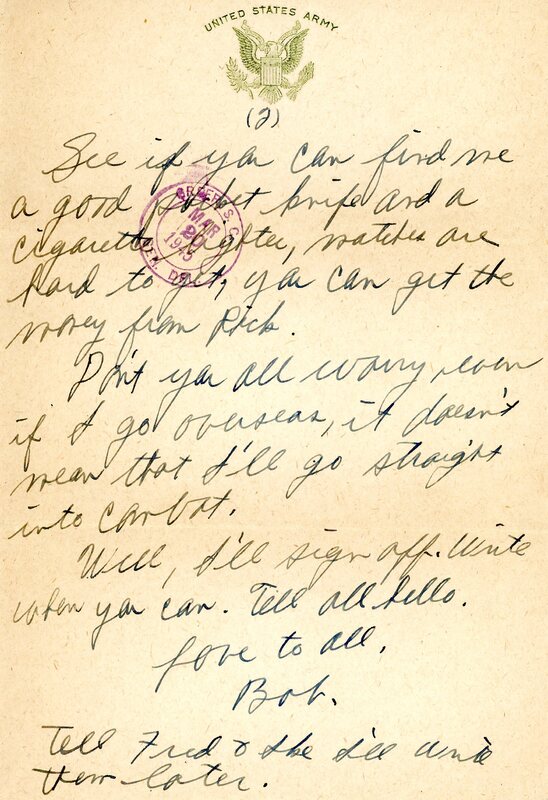 UNITED STATES ARMY
(2)
See if you can find me
a good pocket knife and a
cigarette lighter, matches are
hard to get, you can get the
money from Rick.
Don't you all worry, even
if I go overseas, it doesn't
mean that I'll go straight
into combat.
Well, I'll sign off. Write
when you can. Tell all hello.
Love to all,
Bob.
Tell Fred & She I'll write
them later.
GREER, S. C.
MAR
20
1945
GEN. DEL.